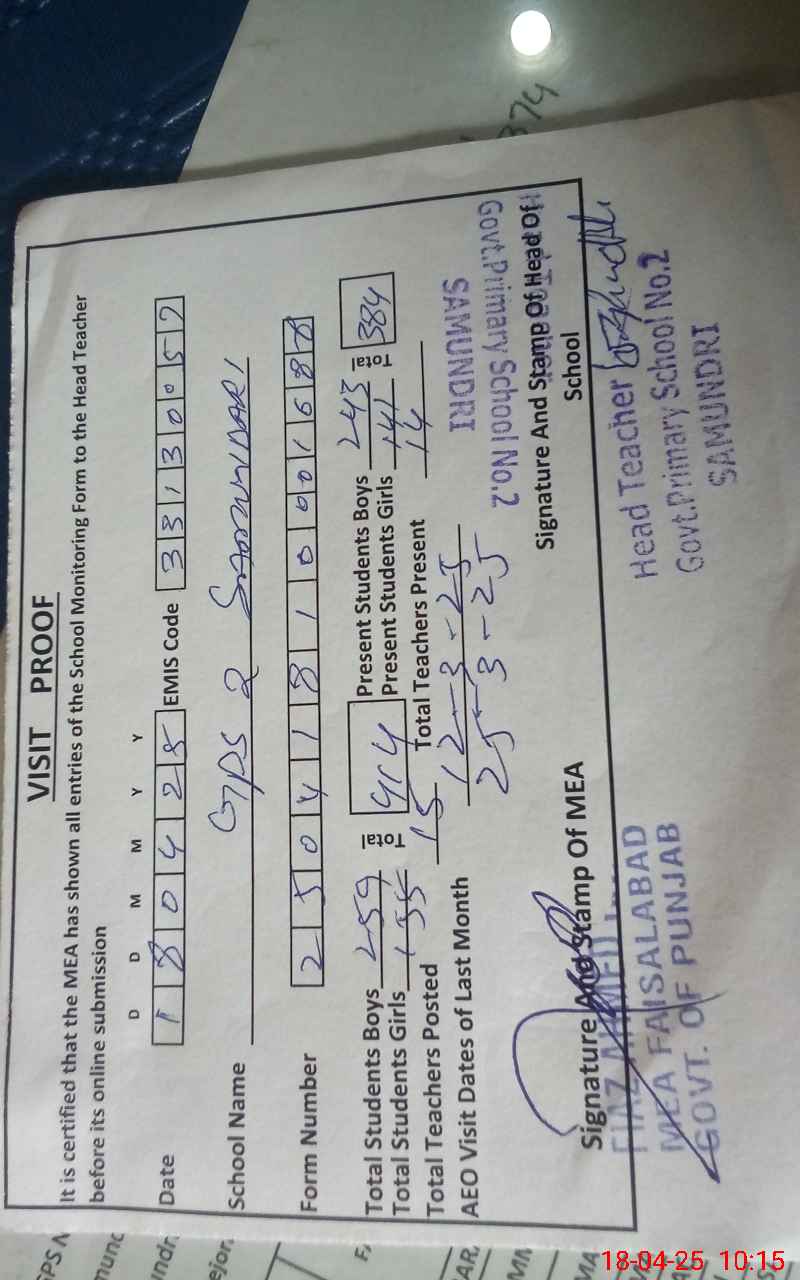 VISIT PROOF
It is certified that the MEA has shown all entries of the School Monitoring Form to the Head Teacher
before its online submission
D D M M Y Y
Date 1 8 0 4 2 5 EMIS Code 3 3 1 3 0 0 5 7
School Name GPS 2 SAMUNDARI
Form Number 2 5 0 4 1 8 1 0 9 0 1 6 8 8
Total Students Boys 259 Total 414 Present Students Boys 243 Total 384
Total Students Girls 155 Present Students Girls 141
Total Teachers Posted 15 Total Teachers Present 14
AEO Visit Dates of Last Month 12-3-25
25-3-25
SAMUNDRI
Govt.Primary School No.2
Signature And Stamp Of MEA Signature And Stamp Of Head Of
School
MEA FAISALABAD
GOVT. OF PUNJAB
Head Teacher
Govt.Primary School No.2
SAMUNDRI
374
18-04-25 10:15